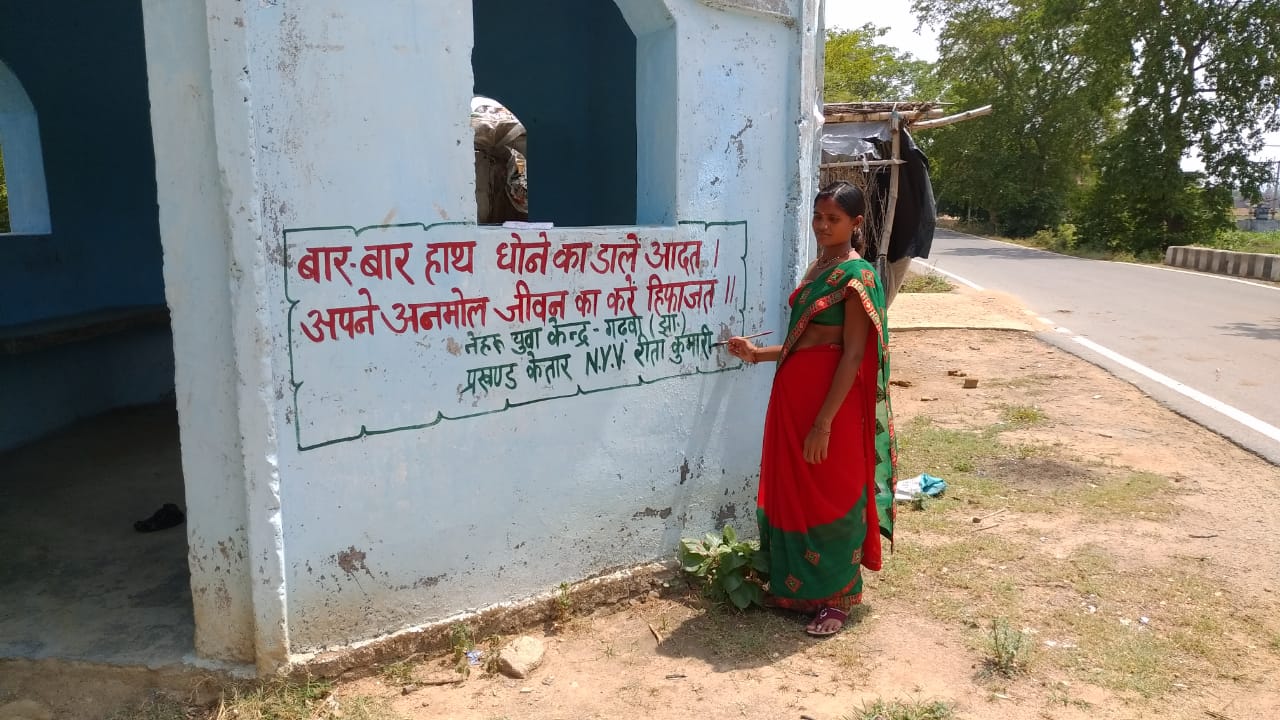 बार-बार हाथ धोने का डालें आदत ।
अपने अनमोल जीवन का करें हिफाजत ॥
नेहरू युवा केन्द्र - गढवा (झा.)
प्रखण्ड केतार N.Y.V. रीता कुमारी